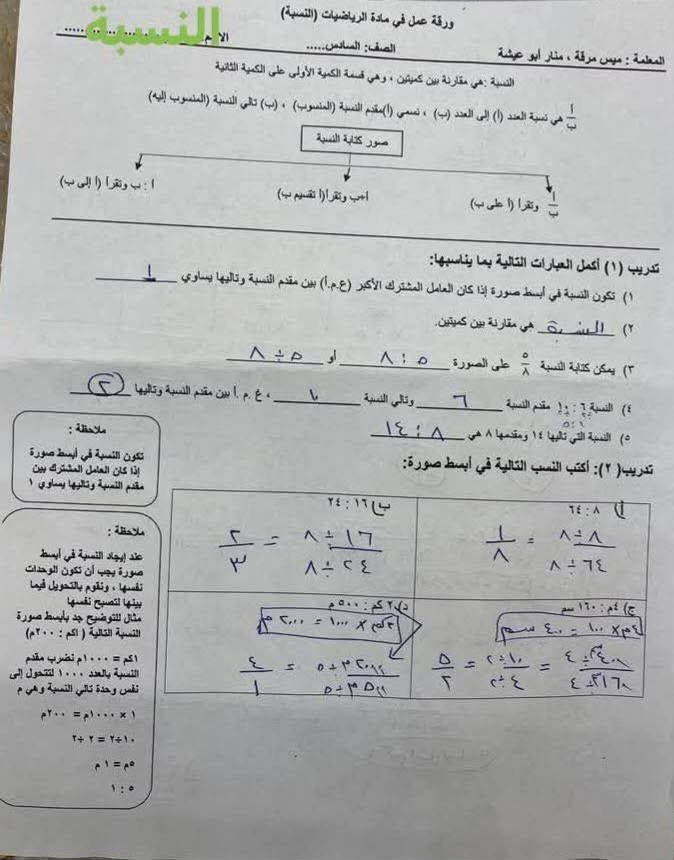 النسبة
ورقة عمل في مادة الرياضيات (النسبة)
المعلمة : ميس مرقة ، منار أبو عيشة الصف: السادس.....
النسبة :هي مقارنة بين كميتين ، وهي قسمة الكمية الأولى على الكمية الثانية
أ/ب هي نسبة العدد (أ) إلى العدد (ب) ، نسمي (أ)مقدم النسبة (المنسوب) ، (ب) تالي النسبة (المنسوب إليه)
صور كتابة النسبة
أ/ب وتقرأ (أ على ب)
أ÷ب وتقرأ(أ تقسيم ب)
أ : ب وتقرأ (أ إلى ب)
تدريب (١) أكمل العبارات التالية بما يناسبها:
١) تكون النسبة في أبسط صورة إذا كان العامل المشترك الأكبر (ع.م.أ) بين مقدم النسبة وتاليها يساوي ١
٢) النسبة هي مقارنة بين كميتين.
٣) يمكن كتابة النسبة ٥/٨ على الصورة ٥ : ٨ أو ٥ ÷ ٨
٤) النسبة ٦ : ١٠ مقدم النسبة ٦ وتالي النسبة ١٠ ، ع . م . أ بين مقدم النسبة وتاليها ٢
٥) النسبة التي تاليها ١٤ ومقدمها ٨ هي ٨ : ١٤
تدريب( ٢): أكتب النسب التالية في أبسط صورة:
أ) ٨ : ٦٤
٨ ÷ ٨ / ٦٤ ÷ ٨ = ١/٨
ب) ١٦ : ٢٤
١٦ ÷ ٨ / ٢٤ ÷ ٨ = ٢/٣
ج) ٤م : ١٦٠ سم
٤م × ١٠٠ = ٤٠٠ سم
= ١٠÷٢ / ٤÷٢ = ٥/٢
د) ٢ كم : ٥٠٠ م
٢كم × ١٠٠٠ = ٢٠٠٠ م
= ٤/١
ملاحظة :
تكون النسبة في أبسط صورة
إذا كان العامل المشترك بين
مقدم النسبة وتاليها يساوي ١
ملاحظة :
عند إيجاد النسبة في أبسط
صورة يجب أن تكون الوحدات
نفسها ، ونقوم بالتحويل فيما
بينها لتصبح نفسها
مثال للتوضيح جد بأبسط صورة
النسبة التالية ( ١كم : ٢٠٠م)
١كم = ١٠٠٠م نضرب مقدم
النسبة بالعدد ١٠٠٠ لتتحول إلى
نفس وحدة تالي النسبة وهي م
١ × ١٠٠٠م = ٢٠٠م
١٠÷٢ = ٢ ÷٢
٥م = ١ م
٥ : ١